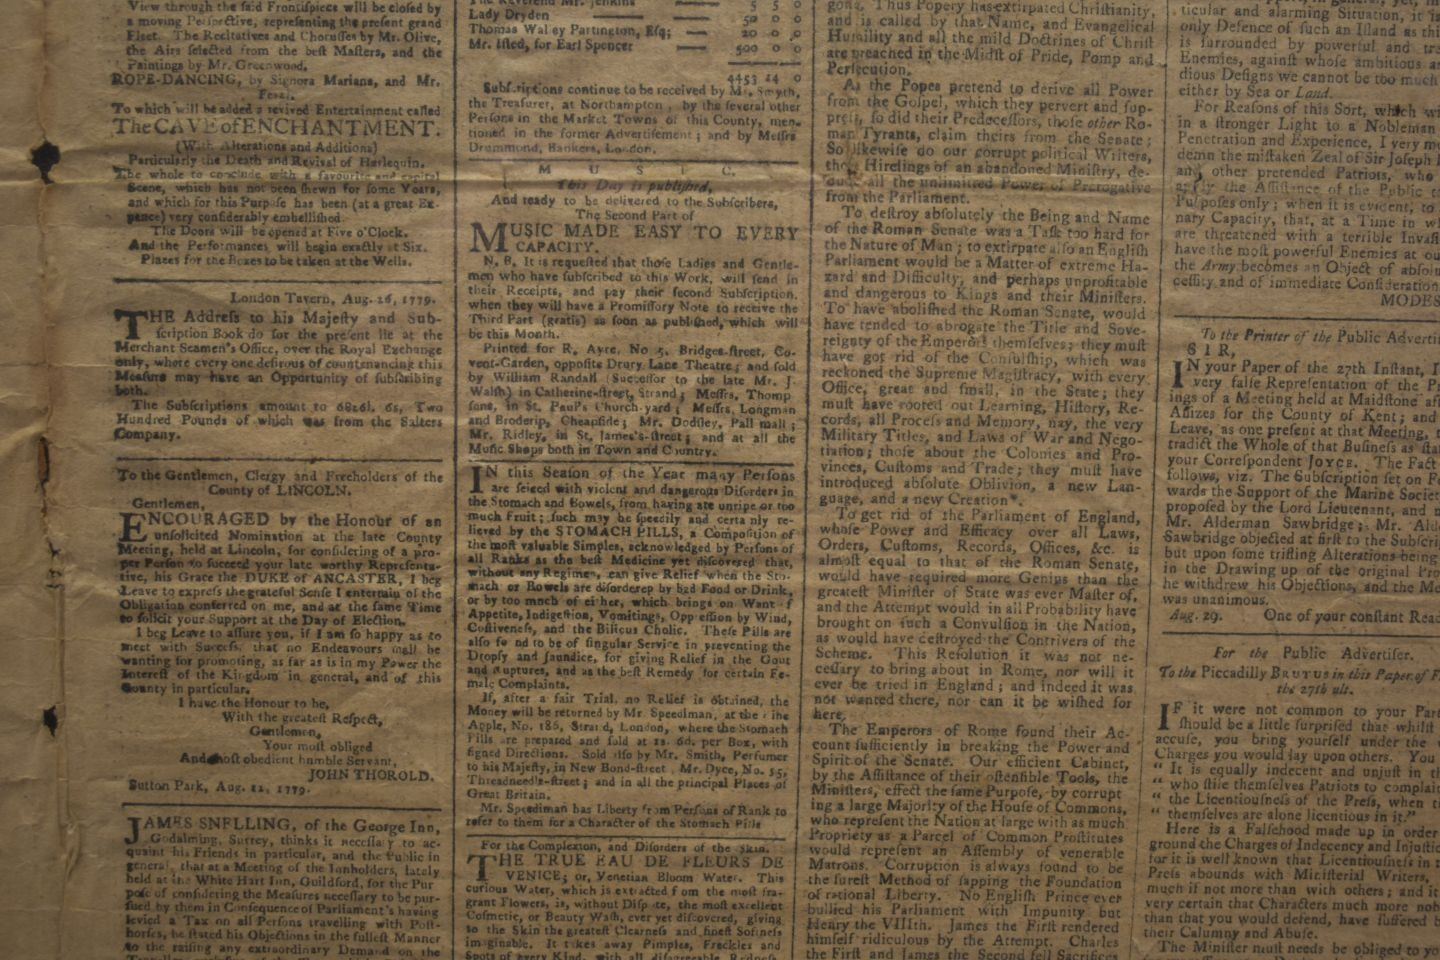 View through the said Frontispiece will be closed by
a moving Perspective, representing the present grand
Fleet. The Recitatives and Chorusses by Mr. Olive,
the Airs selected from the best Masters, and the
Paintings by Mr. Greenwood.
ROPE-DANCING, by Signora Mariana, and Mr.
Ferzi.
To which will be added a revived Entertainment called
The CAVE of ENCHANTMENT.
(With Alterations and Additions)
Particularly the Death and Revival of Harlequin.
The whole to conclude with a favourite and capital
Scene, which has not been shewn for some Years,
and which for this Purpose has been (at a great Ex-
pence) very considerably embellished.
The Doors will be opened at Five o'Clock.
And the Performances will begin exactly at Six.
Places for the Boxes to be taken at the Wells.
London Tavern, Aug. 26, 1779.
THE Address to his Majesty and Sub-
scription Book do for the present lie at the
Merchant Seamen's Office, over the Royal Exchange
only, where every one desirous of countenancing this
Measure may have an Opportunity of subscribing
both.
The Subscriptions amount to 6826l. 6s, Two
Hundred Pounds of which was from the Salters
Company.
To the Gentlemen, Clergy and Freeholders of the
County of LINCOLN.
Gentlemen,
ENCOURAGED by the Honour of an
unsolicited Nomination at the late County
Meeting, held at Lincoln, for considering of a pro-
per Person to succeed your late worthy Representa-
tive, his Grace the DUKE of ANCASTER, I beg
Leave to express the grateful Sense I entertain of the
Obligation conferred on me, and at the same Time
to solicit your Support at the Day of Election.
I beg Leave to assure you, if I am so happy as to
meet with Success, that no Endeavours shall be
wanting for promoting, as far as is in my Power the
Interest of the Kingdom in general, and of this
County in particular.
I have the Honour to be,
With the greatest Respect,
Gentlemen,
Your most obliged
And most obedient humble Servant,
JOHN THOROLD.
Sutton Park, Aug. 22, 1779.
JAMES SNELLING, of the George Inn,
Godalming, Surrey, thinks it necessary to ac-
quaint his Friends in particular, and the Public in
general, that at a Meeting of the Innholders, lately
held at the White Hart Inn, Guildford, for the Pur
pose of considering the Measures necessary to be pur-
sued by them in Consequence of Parliament's having
levied a Tax on all Persons travelling with Post-
horses, he stated his Objections in the fullest Manner
to the raising any extraordinary Demand on the
The Reverend Mr. Jenkins 5 5 0
Lady Dryden 50 0 0
Thomas Walley Partington, Esq; 20 0 0
Mr. Isted, for Earl Spencer 500 0 0
4453 14 0
Subscriptions continue to be received by Mr. Smyth,
the Treasurer, at Northampton, by the several other
Persons in the Market Towns of this County, men-
tioned in the former Advertisement; and by Messrs
Drummond, Bankers, London.
MUSIC.
This Day is published,
And ready to be delivered to the Subscribers,
The Second Part of
MUSIC MADE EASY TO EVERY
CAPACITY.
N. B. It is requested that those Ladies and Gentle-
men who have subscribed to this Work, will send in
their Receipts, and pay their second Subscription,
when they will have a Promissory Note to receive the
Third Part (gratis) as soon as published, which will
be this Month.
Printed for R. Ayre, No 5, Bridges-street, Co-
vent-Garden, opposite Drury Lane Theatre; and sold
by William Randall (Successor to the late Mr. J.
Walsh) in Catherine-street, Strand; Messrs, Thomp
sons, in St. Paul's Church-yard; Messrs, Longman
and Broderip, Cheapside; Mr. Dodsley, Pall mall;
Mr. Ridley, in St. James's-street; and at all the
Music Shops both in Town and Country.
IN this Season of the Year many Persons
are seized with violent and dangerous Disorders in
the Stomach and Bowels, from having ate unripe or too
much Fruit; such may be speedily and certainly re-
lieved by the STOMACH PILLS, a Composition of
the most valuable Simples, acknowledged by Persons of
all Ranks as the best Medicine yet discovered that,
without any Regimen, can give Relief when the Sto-
mach or Bowels are disordered by bad Food or Drink,
or by too much of either, which brings on Want of
Appetite, Indigestion, Vomitings, Oppression by Wind,
Costiveness, and the Bilious Cholic. These Pills are
also found to be of singular Service in preventing the
Dropsy and Jaundice, for giving Relief in the Gout
and Ruptures, and as the best Remedy for certain Fe-
male Complaints.
If, after a fair Trial, no Relief is obtained, the
Money will be returned by Mr. Speedman, at the Pine
Apple, No. 186, Strand, London, where the Stomach
Pills are prepared and sold at 2s. 6d. per Box, with
signed Directions. Sold also by Mr. Smith, Perfumer
to his Majesty, in New Bond-street, Mr. Dyce, No. 15,
Threadneedle-street; and in all the principal Places of
Great Britain.
Mr. Speediman has Liberty from Persons of Rank to
refer to them for a Character of the Stomach Pills
For the Complexion, and Disorders of the Skin.
THE TRUE EAU DE FLEURS DE
VENICE; or, Venetian Bloom Water. This
curious Water, which is extracted from the most fra-
grant Flowers, is, without Dispute, the most excellent
Cosmetic, or Beauty Wash, ever yet discovered, giving
to the Skin the greatest Clearness and finest Softness
imaginable. It takes away Pimples, Freckles and
Spots of every Kind, with all disagreeable Redness,
gons. Thus Popery has extirpated Christianity,
and is called by that Name, and Evangelical
Humility and all the mild Doctrines of Christ
are preached in the Midst of Pride, Pomp and
Persecution.
As the Popes pretend to derive all Power
from the Gospel, which they pervert and sup-
press, so did their Predecessors, those other Ro-
man Tyrants, claim theirs from the Senate;
So likewise do our corrupt political Writers,
those Hirelings of an abandoned Ministry, de-
duce all the unlimitted Power of Prerogative
from the Parliament.
To destroy absolutely the Being and Name
of the Roman Senate was a Task too hard for
the Nature of Man; to extirpate also an English
Parliament would be a Matter of extreme Ha-
zard and Difficulty, and perhaps unprofitable
and dangerous to Kings and their Ministers.
To have abolished the Roman Senate, would
have tended to abrogate the Title and Sove-
reignty of the Emperors themselves; they must
have got rid of the Consulship, which was
reckoned the Supreme Magistracy, with every
Office, great and small, in the State; they
must have rooted out Learning, History, Re-
cords, all Process and Memory, nay, the very
Military Titles, and Laws of War and Nego-
tiation; those about the Colonies and Pro-
vinces, Customs and Trade; they must have
introduced absolute Oblivion, a new Lan-
guage, and a new Creation*.
To get rid of the Parliament of England,
whose Power and Efficacy over all Laws,
Orders, Customs, Records, Offices, &c. is
almost equal to that of the Roman Senate,
would have required more Genius than the
greatest Minister of State was ever Master of,
and the Attempt would in all Probability have
brought on such a Convulsion in the Nation,
as would have destroyed the Contrivers of the
Scheme. This Resolution it was not ne-
cessary to bring about in Rome, nor will it
ever be tried in England; and indeed it was
not wanted there, nor can it be wished for
here,
The Emperors of Rome found their Ac-
count sufficiently in breaking the Power and
Spirit of the Senate. Our efficient Cabinet,
by the Assistance of their ostensible Tools, the
Ministers, effect the same Purpose, by corrupt
ing a large Majority of the House of Commons,
who represent the Nation at large with as much
Propriety as a Parcel of Common Prostitutes
would represent an Assembly of venerable
Matrons. Corruption is always found to be
the surest Method of sapping the Foundation
of rational Liberty. No English Prince ever
bullied his Parliament with Impunity but
Henry the VIIIth. James the First rendered
himself ridiculous by the Attempt. Charles
the First and James the Second fell Sacrifices
ticular and alarming Situation, it is
only Defence of such an Island as this
is surrounded by powerful and
Enemies, against whose ambitious
dious Designs we cannot be too much
either by Sea or Land.
For Reasons of this Sort, which
in a stronger Light to a Nobleman
Penetration and Experience, I very
demn the mistaken Zeal of Sir Joseph
and other pretended Patriots, who
apply the Assistance of the Public to
Purposes only; when it is evident, to
nary Capacity, that, at a Time in
are threatened with a terrible
have the most powerful Enemies at our
the Army becomes an Object of
cessity and of immediate Consideration
MODES
To the Printer of the Public
SIR,
IN your Paper of the 27th Instant, I
very false Representation of the
ings of a Meeting held at Maidstone
Assizes for the County of Kent; and
Leave, as one present at that Meeting,
tradict the Whole of that Business as
your Correspondent JOYCE. The Fact
follows, viz. The Subscription set on
wards the Support of the Marine
proposed by the Lord Lieutenant, and
Mr. Alderman Sawbridge; Mr.
Sawbridge objected at first to the
but upon some trifling Alterations being
in the Drawing up of the original
he withdrew his Objections, and the
was unanimous.
Aug. 29. One of your constant
For the Public Advertiser.
To the Piccadilly BRUTUS in this Paper of
the 27th ult.
IF it were not common to your
should be a little surprised that whilst
accuse, you bring yourself under the
Charges you would lay upon others. You
" It is equally indecent and unjust in
" who stile themselves Patriots to
" the Licentiousness of the Press, when
" themselves are alone licentious in it."
Here is a Falsehood made up in order
ground the Charges of Indecency and
for it is well known that Licentiousness in
Press abounds with Ministerial Writers,
much if not more than with others; and it
very certain that Characters much more
than that you would defend, have suffered
their Calumny and Abuse.
The Minister must needs be obliged to